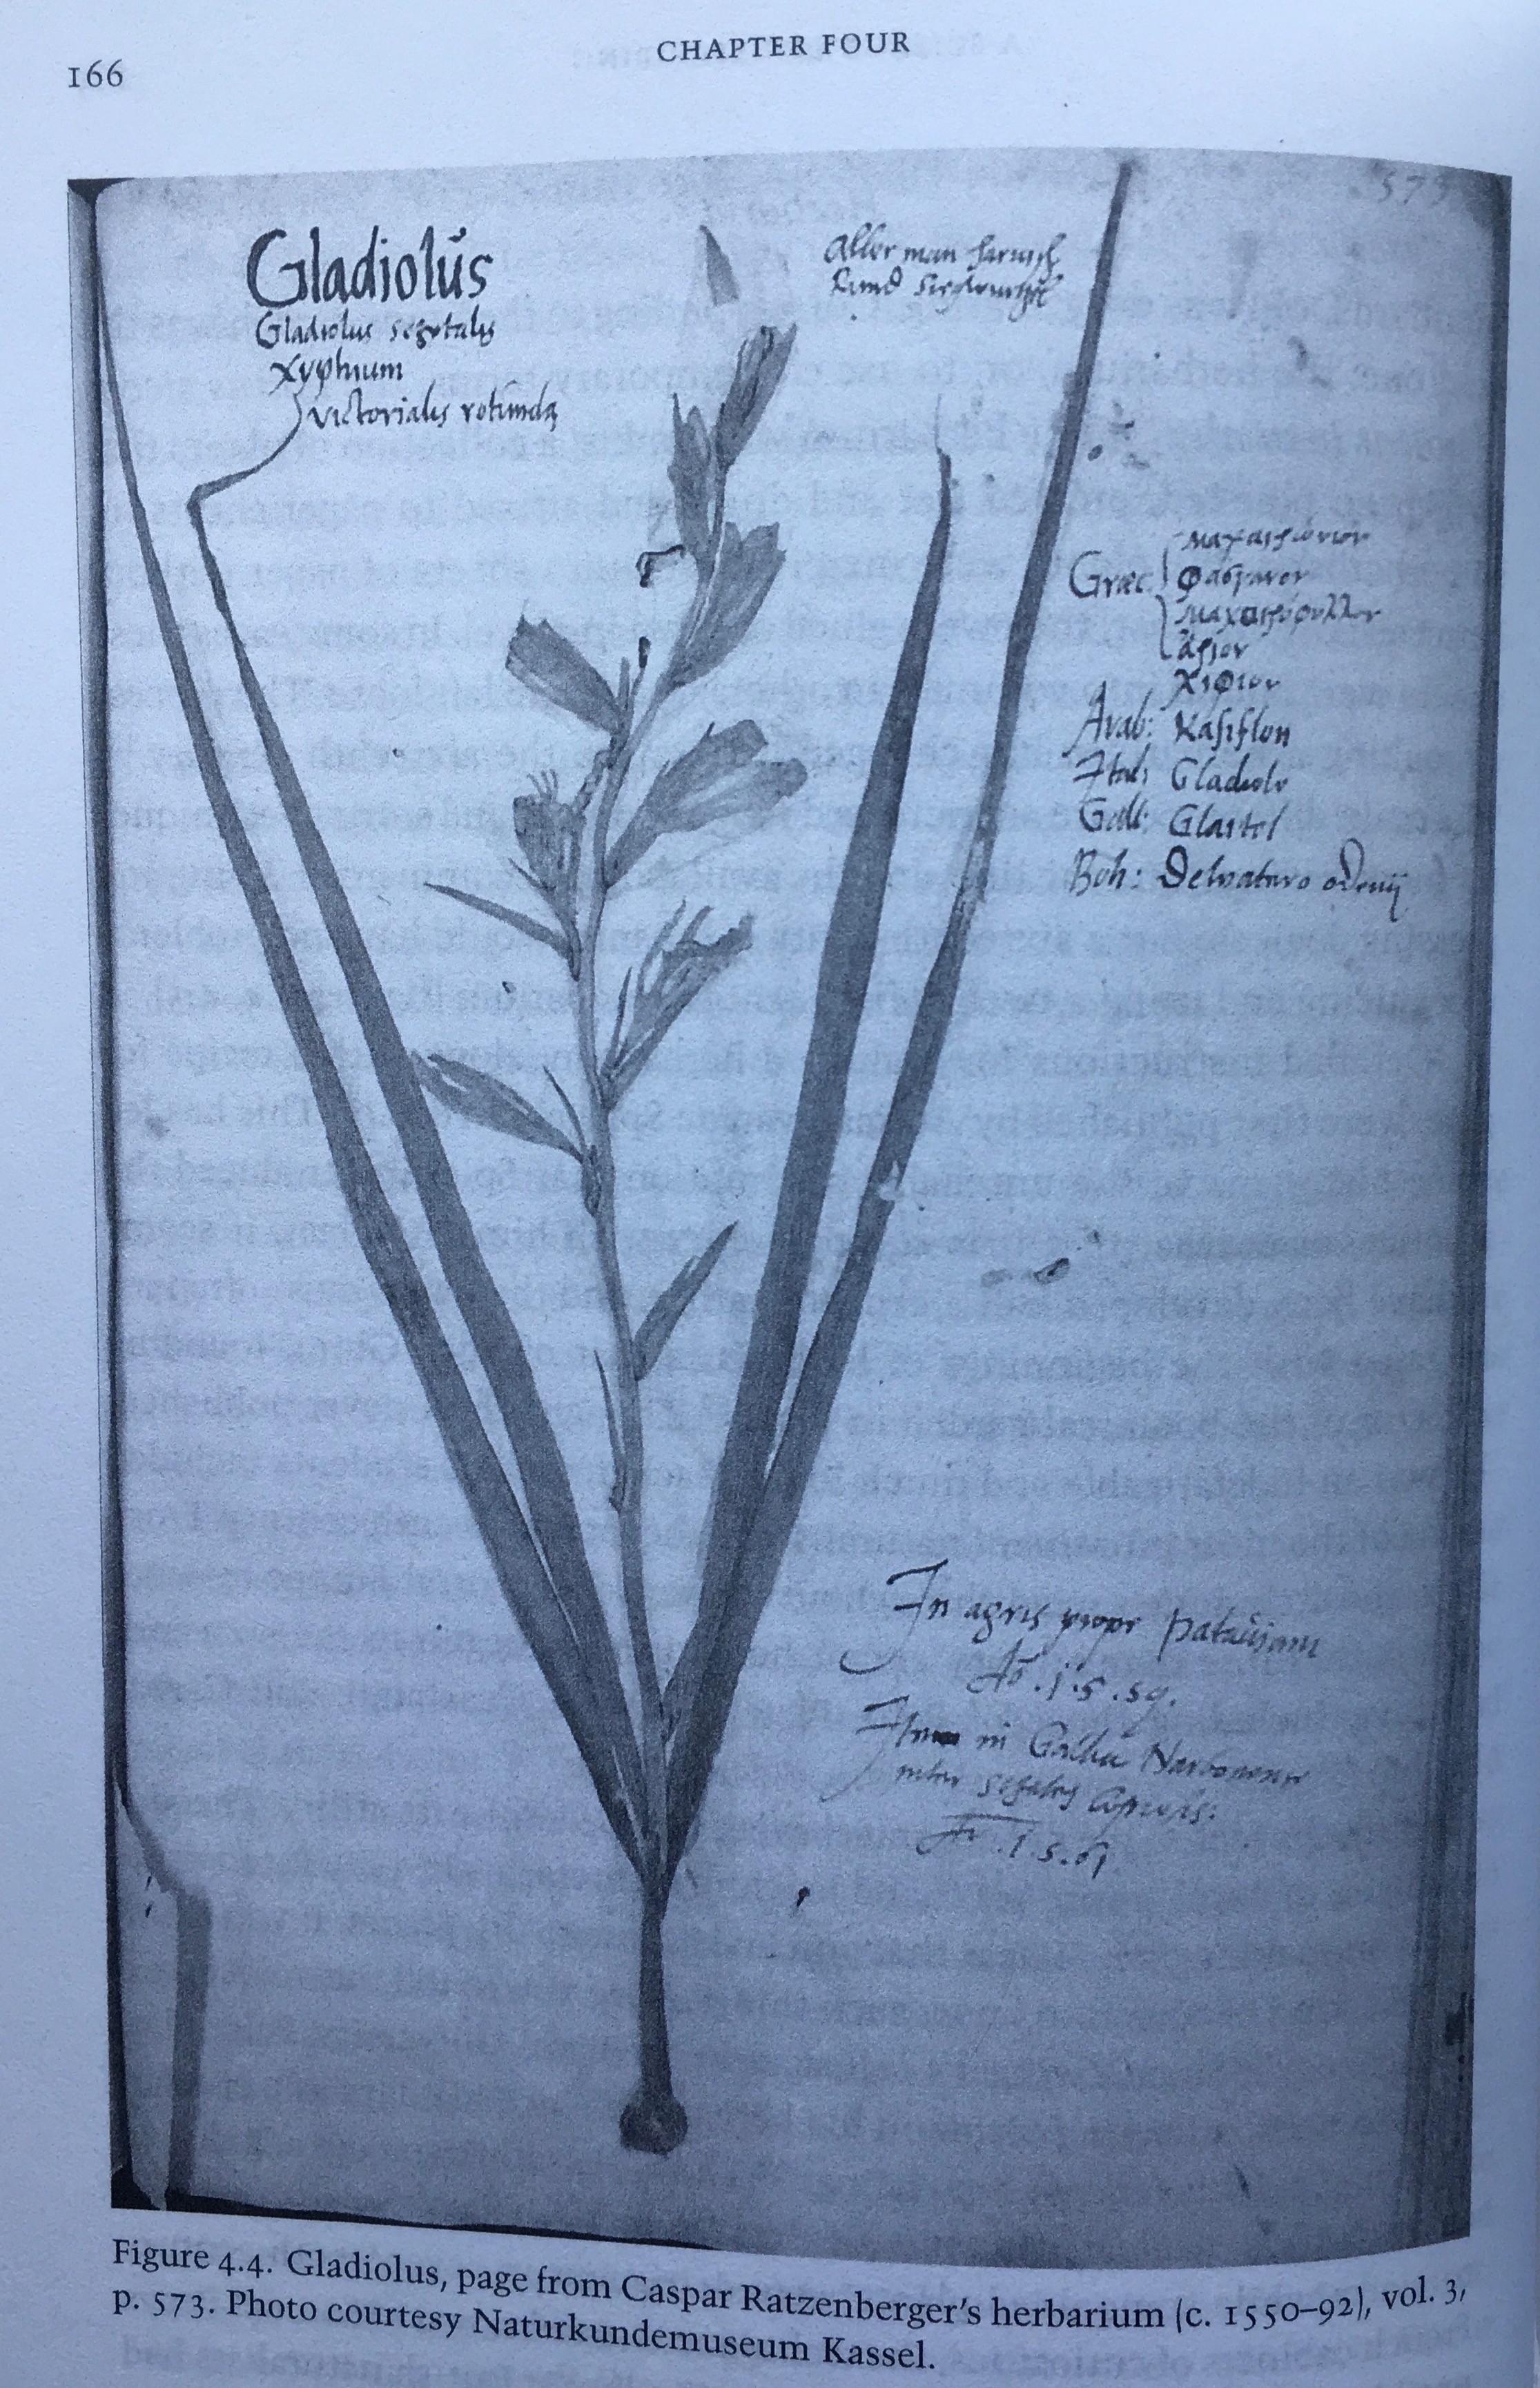 166
CHAPTER FOUR
573
Gladiolŭs
Gladiolus segetalis
Xyphium
Victorialis rotunda
Aller man harnisch
Græc:
φάσγανον
ξιφιον
Arab: Kasiflon
Ital: Gladiolo
Gall: Glaitel
Boh:
In agris prope pataŭiam
Aō .1.5.59.
in Gallia Narbonensi
inter segetes
1.5.61
Figure 4.4. Gladiolus, page from Caspar Ratzenberger's herbarium (c. 1550–92), vol. 3,
p. 573. Photo courtesy Naturkundemuseum Kassel.